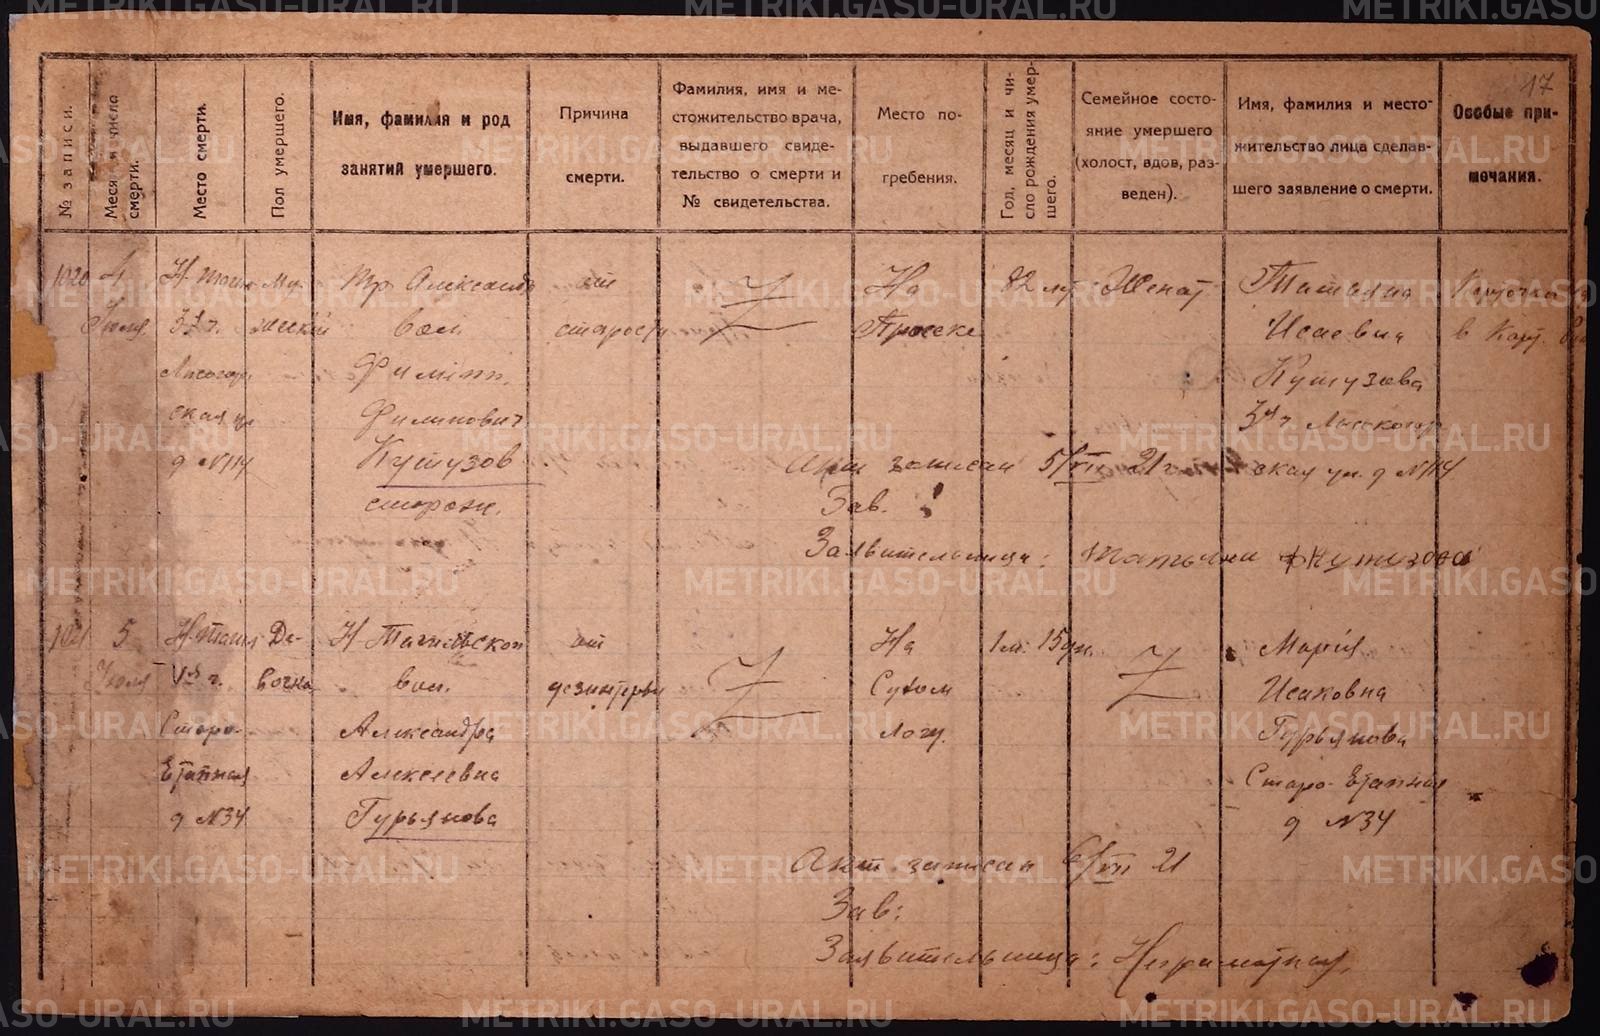 17
№ записи.
Месяц и число смерти.
Место смерти.
Пол умершего.
Имя, фамилия и род
занятий умершего.
Причина
смерти.
Фамилия, имя и ме-
стожительство врача,
выдавшего свиде-
тельство о смерти и
№ свидетельства.
Место по-
гребения.
Год, месяц и чи-
сло рождения умер-
шего.
Семейное состо-
яние умершего
(холост, вдов, раз-
веден).
Имя, фамилия и место-
жительство лица сделав-
шего заявление о смерти.
Особые при-
мечания.
1020
4
Июля
Н. Таги
3я ч.
Лисогор
ская ул
д №114
Му-
жской
Александ
вол
Филипп.
Филипович
Кутузов
сторож.
от
старости
На
Просеке
82 лет
Женат
Татьяна
Исаевна
Кутузова
3я ч Лисогор
ская ул. д №114
Карточка
в Карт.
Акт записан 5/VII 21 г
Зав.
Заявительница: Татьяна Кутузова
1021
5
Июля
Н. Тагил
Vя ч.
Старо-
Етапная
д №34
Де-
вочка
Н-Тагильской
вол.
Александра
Алексеевна
Гурьянова
от
дезинтерьи
На
Сухом
Логу.
1 м. 15 дн.
Мария
Исаковна
Гурьянова
Старо-Етапная
д №34
Акт записан 6/VII 21
Зав:
Заявительница: Неграмотная.
METRIKI.GASO-URAL.RU